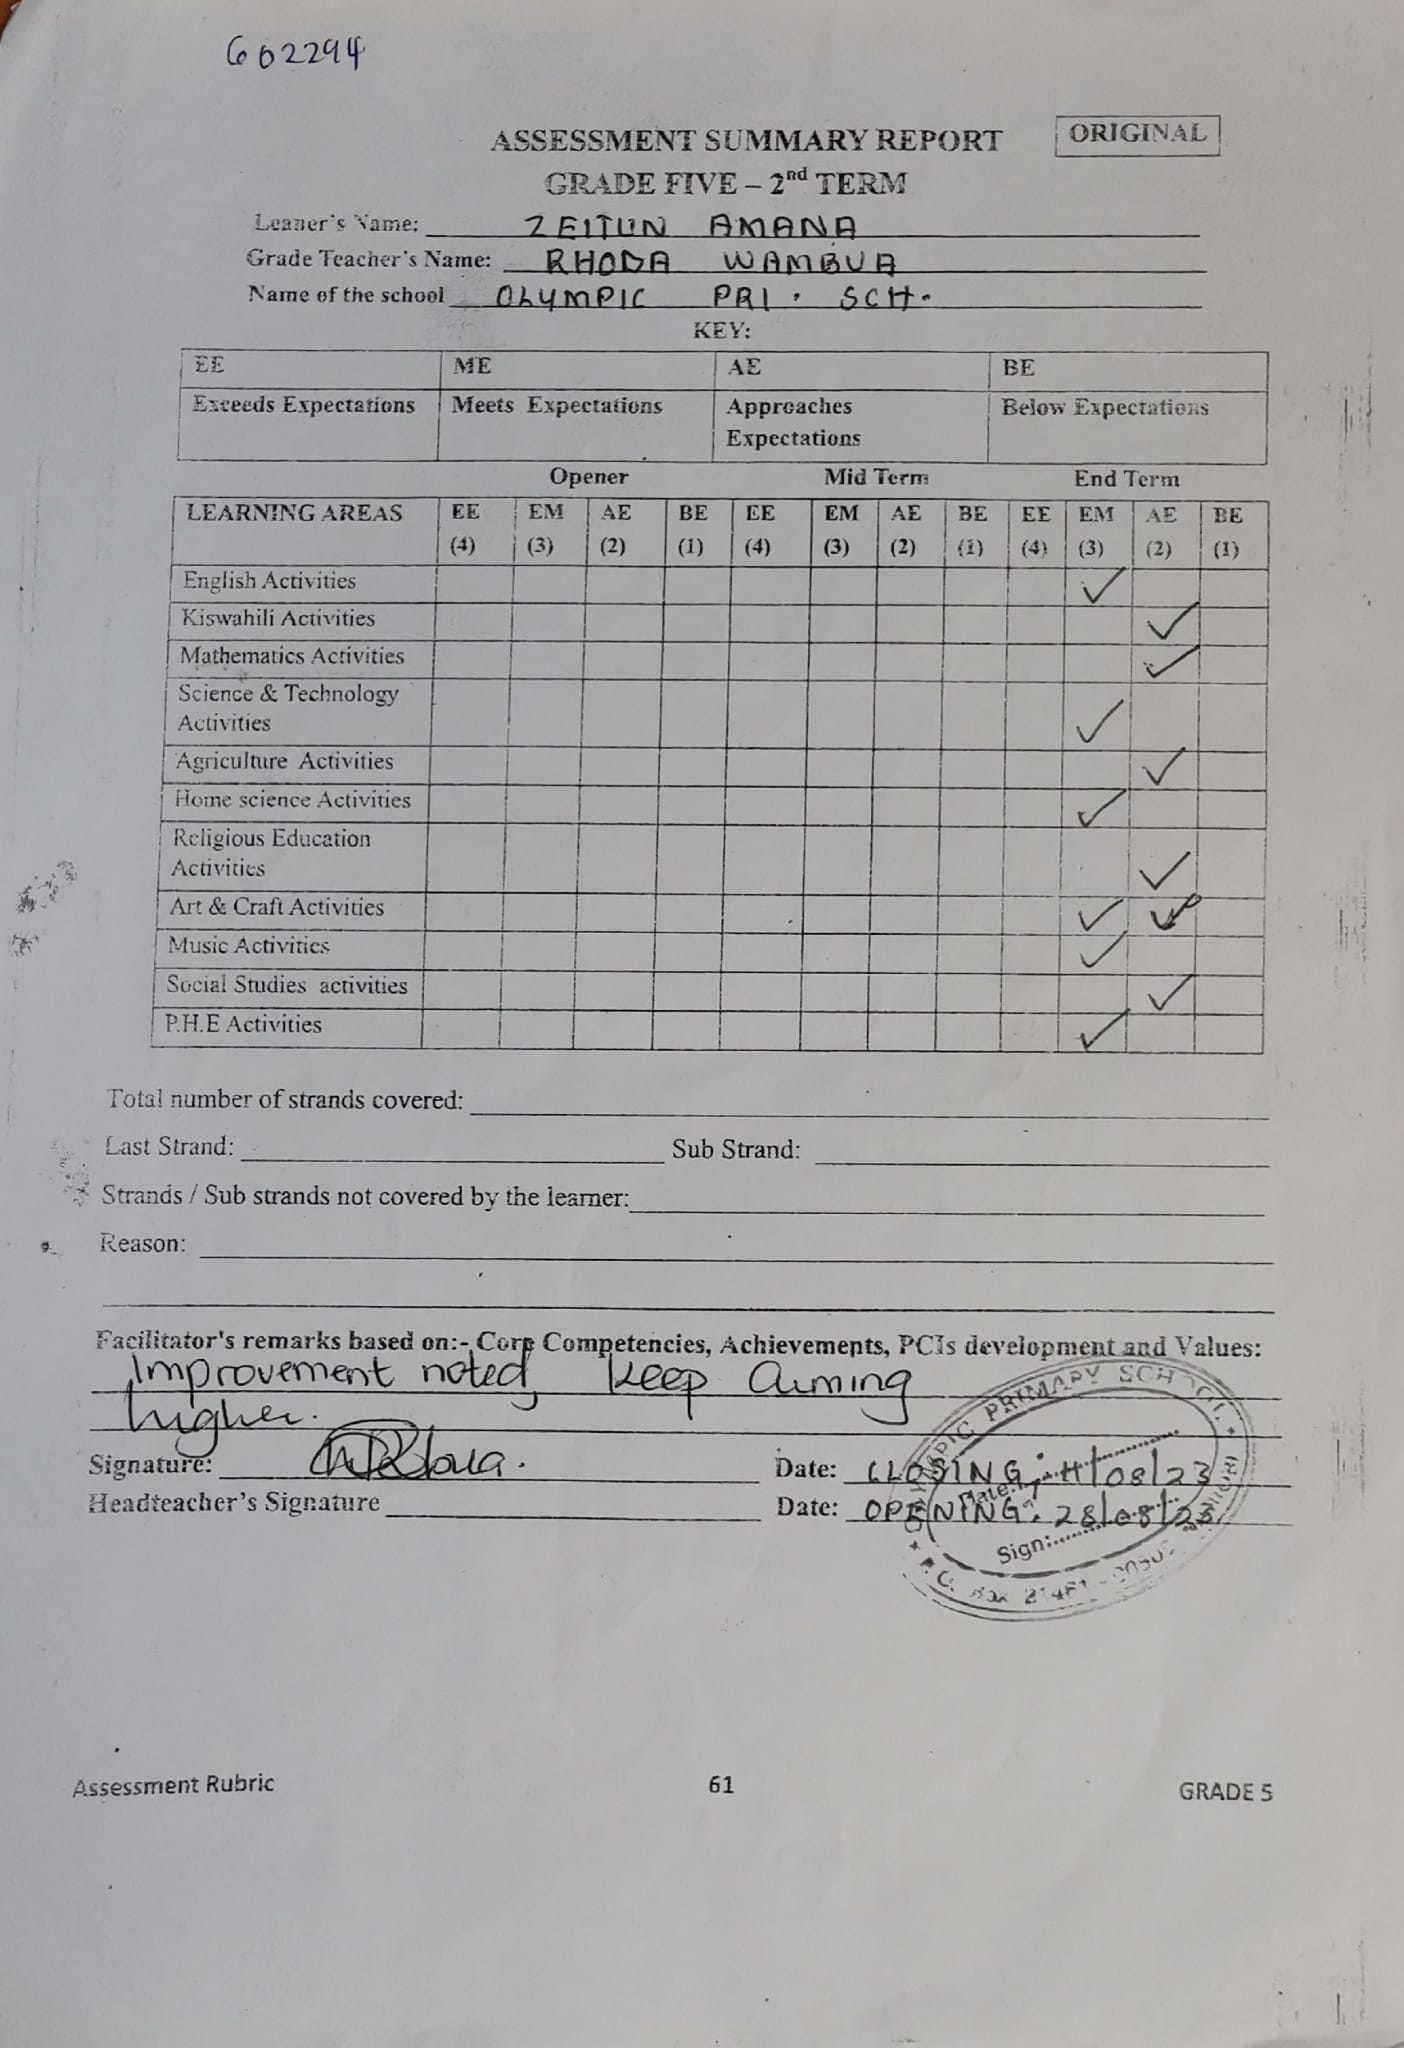 602294
ORIGINAL
ASSESSMENT SUMMARY REPORT
GRADE FIVE – 2nd TERM
Leaner's Name: ZEITUN AMANA
Grade Teacher's Name: RHODA WAMBUA
Name of the school OLYMPIC PRI. SCH.
KEY:
EE ME AE BE
Exceeds Expectations Meets Expectations Approaches Expectations Below Expectations
Opener Mid Term End Term
LEARNING AREAS EE EM AE BE EE EM AE BE EE EM AE BE
(4) (3) (2) (1) (4) (3) (2) (1) (4) (3) (2) (1)
English Activities ✓
Kiswahili Activities ✓
Mathematics Activities ✓
Science & Technology
Activities ✓
Agriculture Activities ✓
Home science Activities ✓
Religious Education
Activities ✓
Art & Craft Activities ✓ ✓
Music Activities ✓
Social Studies activities ✓
P.H.E Activities ✓
Total number of strands covered:
Last Strand: Sub Strand:
Strands / Sub strands not covered by the learner:
Reason:
Facilitator's remarks based on:- Core Competencies, Achievements, PCIs development and Values:
Improvement noted, Keep Aiming
higher.
Signature: Date: CLOSING: 11/08/23
Headteacher's Signature Date: OPENING: 28/08/23
OLYMPIC PRIMARY SCHOOL
Date:
Sign:
P.O. Box 21461
Assessment Rubric 61 GRADE 5